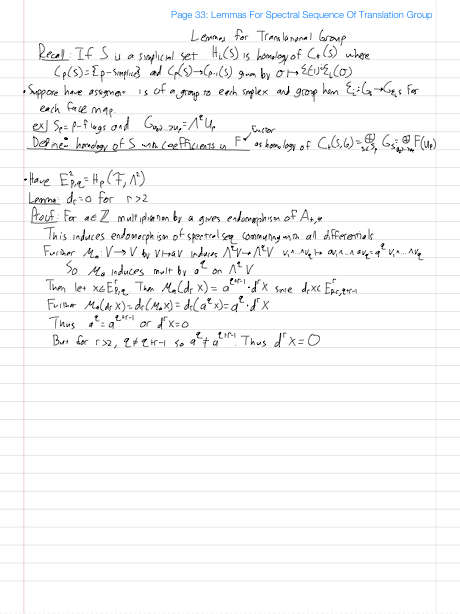 Page 33: Lemmas For Spectral Sequence Of Translation Group
Lemmas for Translational Group
Recall: If S is a simplicial set H_i(S) is homology of C_*(S) where
C_p(S)=Σ p-simplices and C_p(S)→C_{p-1}(S) given by σ↦Σ(-1)^i ε_i(σ)
• Suppose have assignment is of a group to each simplex and group hom ε_i: G_s→G_{ε_i s} for
each face map.
ex) S_p = p-flags and G_{u_0>...>u_p} = Λ^q U_p
Define: homology of S with coefficients in F functor as homology of C_p(S,G)=⊕_{s∈S_p} G_s = ⊕ F(U_p)
• Have E^2_{p,q} = H_p(F, Λ^q)
Lemma: d_r=0 for r>2
Proof: For a∈ℤ multiplication by a gives endomorphism of A_{*,*}
This induces endomorphism of spectral seq commuting with all differentials
Further M_a: V→V by v↦av induces Λ^qV→Λ^qV v_1∧...∧v_q ↦ av_1∧...∧av_q = a^q v_1∧...∧v_q
So M_a induces mult by a^q on Λ^q V
Then let x∈E^r_{p,q}. Then M_a(d_r x) = a^{q+r-1}·d^r x since d_r x∈E^r_{p-r,q+r-1}
Further M_a(d_r x)=d_r(M_a x)=d_r(a^q x)=a^q·d^r x
Thus a^q = a^{q+r-1} or d^r x=0
But for r>2, q≠q+r-1 so a^q≠a^{q+r-1}. Thus d^r x=0